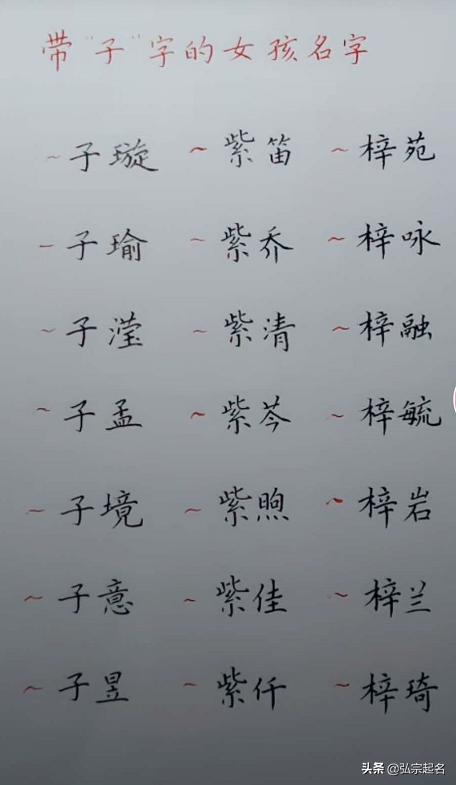 带"子"字的女孩名字
~子璇 ~紫笛 ~梓苑
~子瑜 ~紫乔 ~梓咏
~子滢 ~紫清 ~梓融
~子孟 ~紫芩 ~梓毓
~子境 ~紫煦 ~梓岩
~子意 ~紫佳 ~梓兰
~子昱 ~紫仟 ~梓琦
头条 @弘宗起名